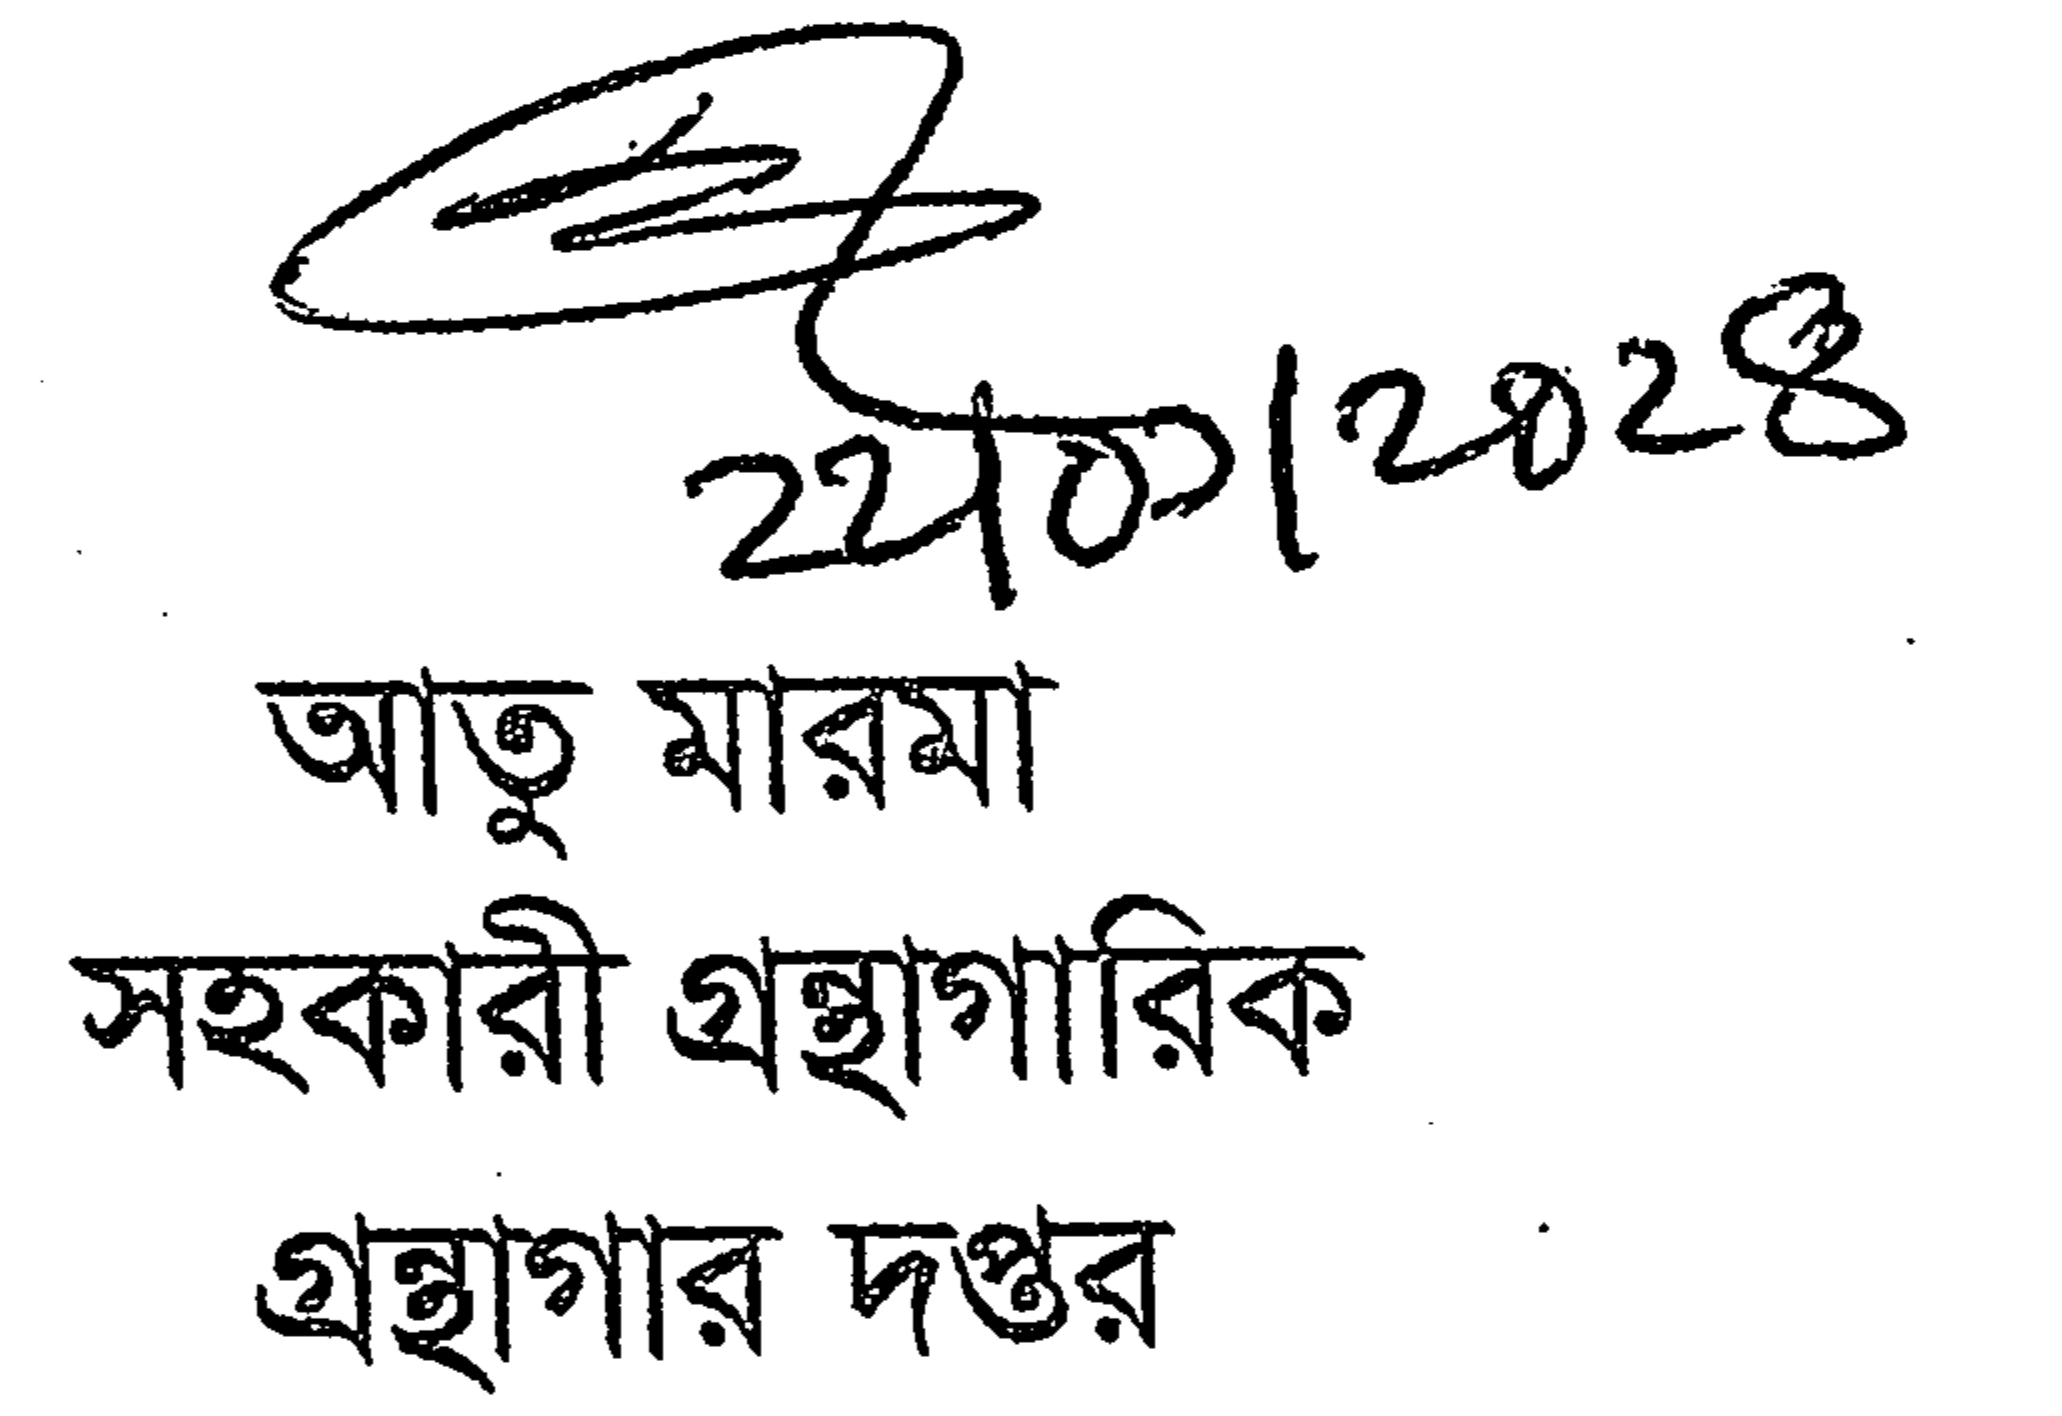 ২২/০৮/২০২৪
আতু মারমা
সহকারী গ্রন্থাগারিক
গ্রন্থাগার দপ্তর